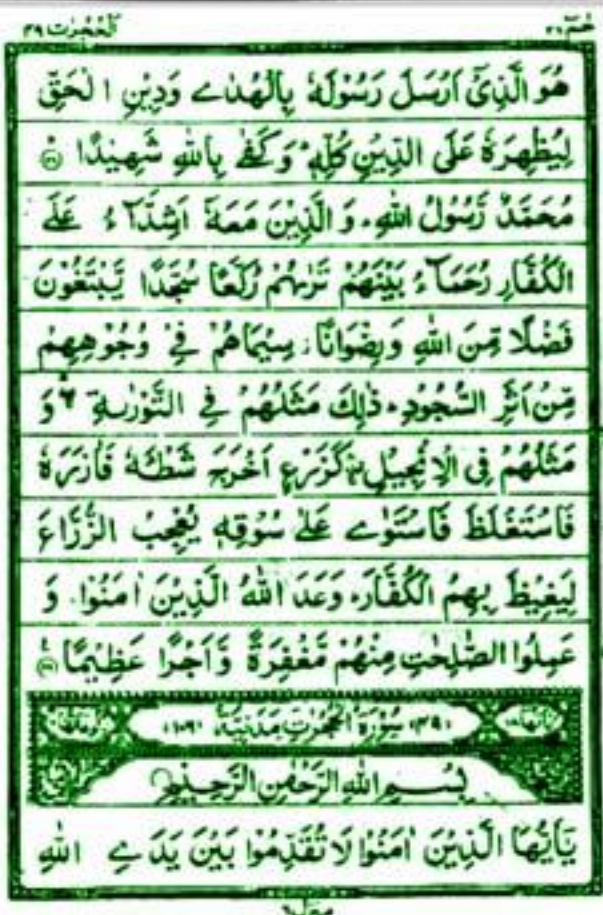 حٰمٓ ٢٦
الحُجُرٰت ٤٩
هُوَ الَّذِیْۤ اَرْسَلَ رَسُوْلَهٗ بِالْهُدٰے وَدِیْنِ الْحَقِّ
لِیُظْهِرَهٗ عَلَی الدِّیْنِ كُلِّهٖ ؕ وَكَفٰے بِاللّٰهِ شَهِیْدًا ۝
مُحَمَّدٌ رَّسُوْلُ اللّٰهِ ؕ وَ الَّذِیْنَ مَعَهٗۤ اَشِدَّآءُ عَلَے
الْكُفَّارِ رُحَمَآءُ بَیْنَهُمْ تَرٰىهُمْ رُكَّعًا سُجَّدًا یَّبْتَغُوْنَ
فَضْلًا مِّنَ اللّٰهِ وَرِضْوَانًا ؗ سِیْمَاهُمْ فِیْ وُجُوْهِهِمْ
مِّنْ اَثَرِ السُّجُوْدِ ؕ ذٰلِكَ مَثَلُهُمْ فِے التَّوْرٰىةِ ۛۖ وَ
مَثَلُهُمْ فِی الْاِنْجِیْلِ ۛ۫ كَزَرْعٍ اَخْرَجَ شَطْـَٔهٗ فَاٰزَرَهٗ
فَاسْتَغْلَظَ فَاسْتَوٰے عَلٰے سُوْقِهٖ یُعْجِبُ الزُّرَّاعَ
لِیَغِیْظَ بِهِمُ الْكُفَّارَ ؕ وَعَدَ اللّٰهُ الَّذِیْنَ اٰمَنُوْا وَ
عَمِلُوا الصّٰلِحٰتِ مِنْهُمْ مَّغْفِرَةً وَّاَجْرًا عَظِیْمًا ۝
(٤٩) سُوْرَةُ الْحُجُرٰتِ مَدَنِیَّةٌ (١٠٦)
بِسْمِ اللّٰهِ الرَّحْمٰنِ الرَّحِیْمِ
یٰۤاَیُّهَا الَّذِیْنَ اٰمَنُوْا لَا تُقَدِّمُوْا بَیْنَ یَدَےِ اللّٰهِ